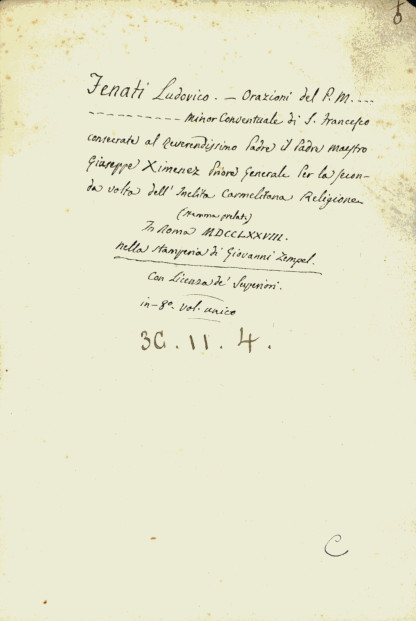 6
Fenati Ludovico. — Orazioni del P. M. ....
---------- Minor Conventuale di S. Francesco
consecrate al Reverendissimo Padre il Padre Maestro
Giuseppe Ximenez Priore Generale per la secon-
da volta dell' Inclita Carmelitana Religione
(Stemma prelati)
In Roma MDCCLXXVIII.
nella stamperia di Giovanni Zempel.
Con Licenza de' Superiori.
in-8º. vol. unico
3C. 11. 4.
C